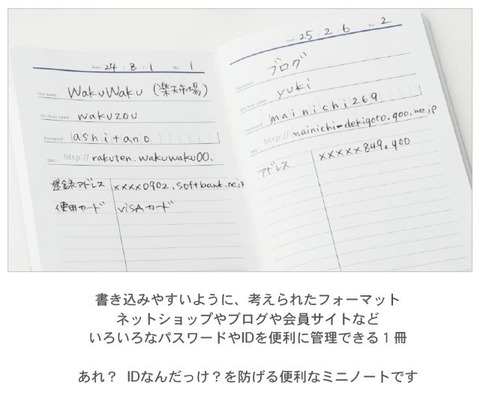 24 . 8 . 1 1
WakuWaku (楽天市場)
wakuzou
Password ashitano
http:// rakuten.wakuwaku00.
登録アドレス xxxx0902.softbank.ne.jp
使用カード VISAカード
25 2 6 2
ブログ
yuki
mainichi269
http:// mainichi-dekigoto.goo.ne.jp
アドレス xxxxx849.goo
書き込みやすいように、考えられたフォーマット
ネットショップやブログや会員サイトなど
いろいろなパスワードやIDを便利に管理できる1冊
あれ? IDなんだっけ?を防げる便利なミニノートです